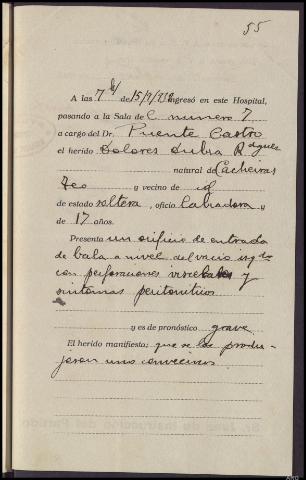 55
A las 7 de 15/9/932 ingresó en este Hospital,
pasando a la Sala de C. numero 7
a cargo del Dr. Puente Castro
el herido Dolores Rgues
natural de Cacheiras
Teo y vecino de id
de estado soltera, oficio Labradora y
de 17 años.
Presenta un orificio de entrada
de bala a nivel del vacio izqdo
con perforaciones viscerales y
sintomas peritoniticos
y es de pronóstico grave
El herido manifiesta: que se las produ-
jeron unos convecinos.